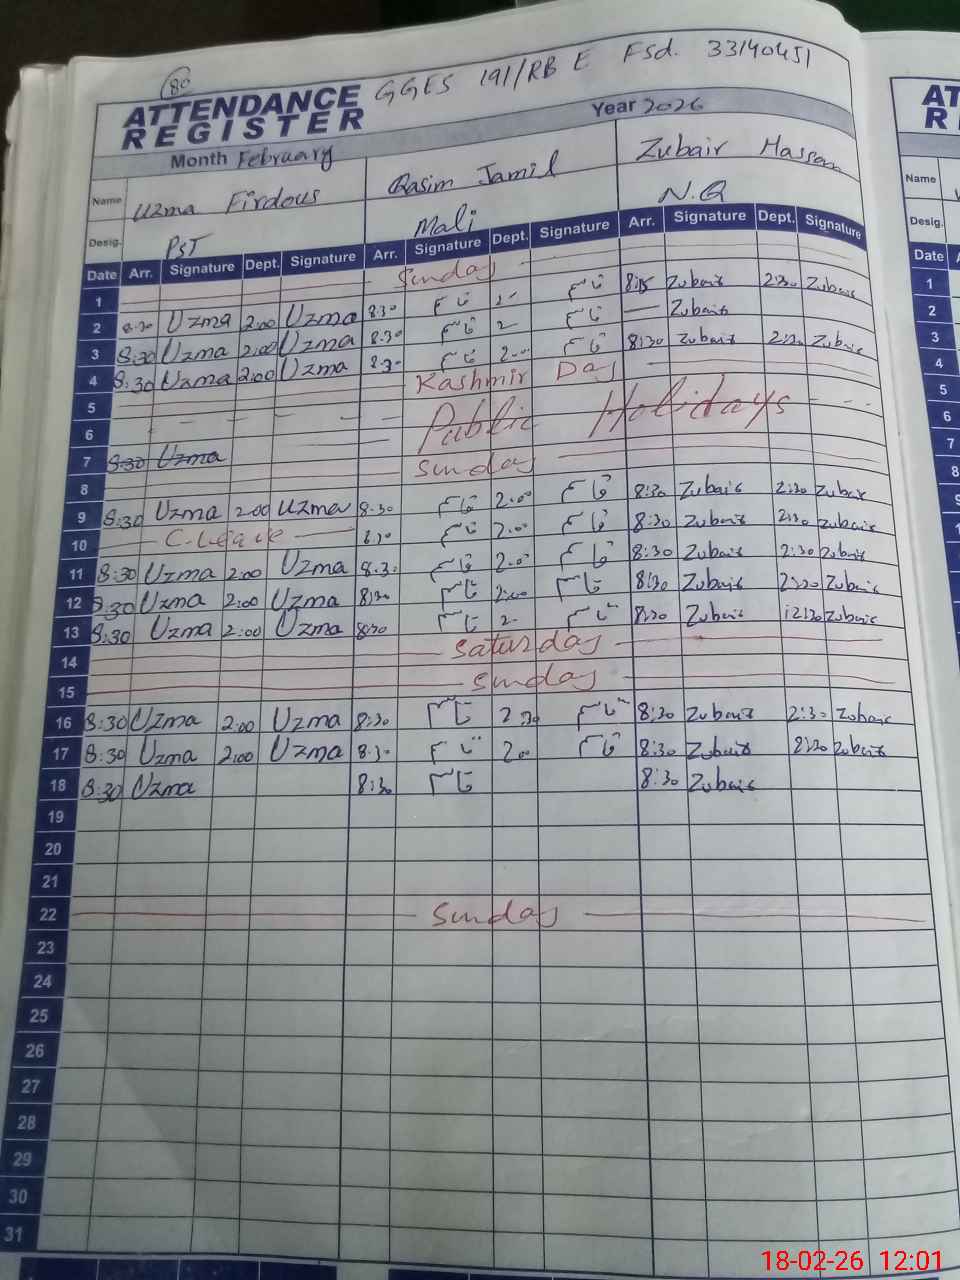 80
GGES 191/RB E Fsd. 33140451
ATTENDANCE
REGISTER
Year 2026
Month February
Name Uzma Firdous Qasim Jamil Zubair Hassan
Desig. PST Mali N.Q
Date Arr. Signature Dept. Signature Arr. Signature Dept. Signature Arr. Signature Dept. Signature
1 Sunday
2 8:30 Uzma 2:00 Uzma 8.30 قاسم 2- قاسم 8:15 Zubair 2:30 Zubair
3 8:30 Uzma 2:00 Uzma 8.30 قاسم 2- قاسم — Zubair
4 8:30 Uzma 2:00 Uzma 8.30 قاسم 2-00 قاسم 8:30 Zubair 2:30 Zubair
5 Kashmir Day
6 Public Holidays
7 8:30 Uzma
8 Sunday
9 8:30 Uzma 2:00 Uzma 8.30 قاسم 2.00 قاسم 8:30 Zubair 2:30 Zubair
10 C-Leave 8.30 قاسم 2.00 قاسم 8:30 Zubair 2:30 Zubair
11 8:30 Uzma 2:00 Uzma 8.30 قاسم 2.00 قاسم 8:30 Zubair 2:30 Zubair
12 8:30 Uzma 2:00 Uzma 8:30 قاسم 2:00 قاسم 8:30 Zubair 2:30 Zubair
13 8:30 Uzma 2:00 Uzma 8:30 قاسم 2- قاسم 8:30 Zubair 12:30 Zubair
14 Saturday
15 Sunday
16 8:30 Uzma 2:00 Uzma 8:30 قاسم 2 30 قاسم 8:30 Zubair 2:30 Zubair
17 8:30 Uzma 2:00 Uzma 8.30 قاسم 2.00 قاسم 8:30 Zubair 8:30 Zubair
18 8:30 Uzma 8:30 قاسم 8:30 Zubair
19
20
21
22 Sunday
23
24
25
26
27
28
29
30
31
AT
R
Name
Desig.
Date
1
2
3
4
5
6
7
8
18-02-26 12:01